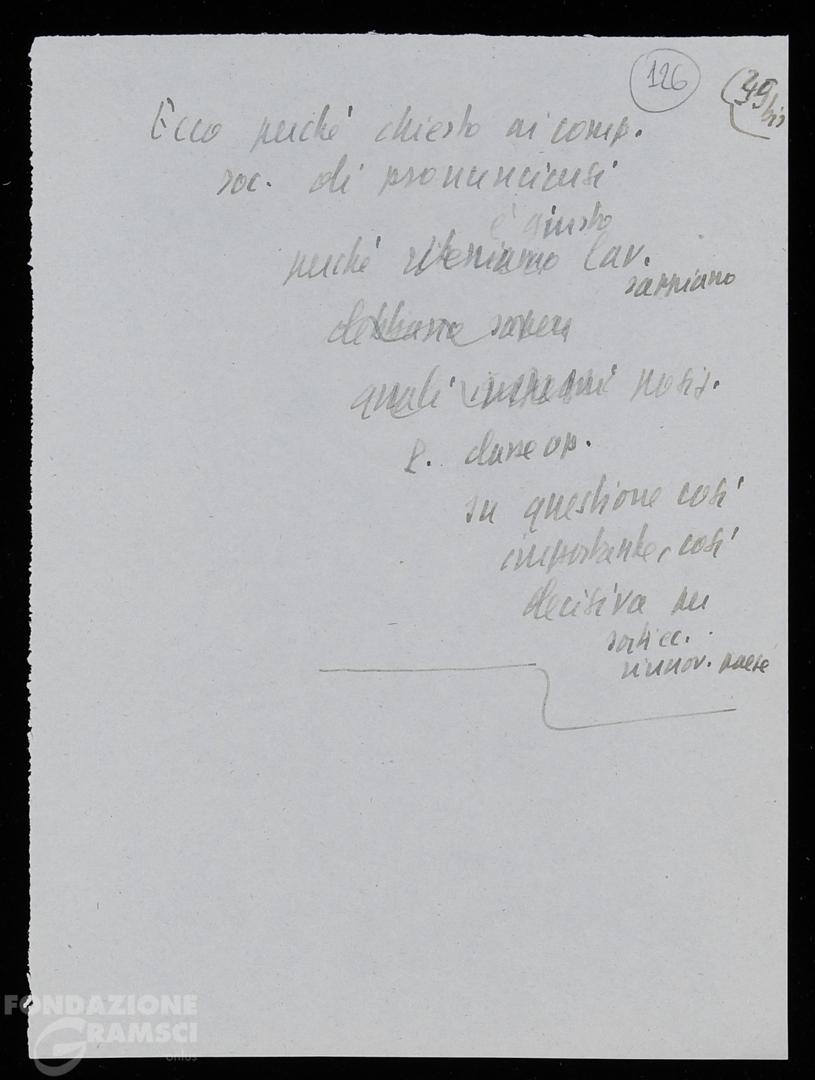 126
39 bis
Ecco perché chiesto ai comp.
soc. di pronunciarsi
è giusto
perché riteniamo lav.
sappiano
debbano sapere
quali posiz.
P. classe op.
su questione così
importante, così
decisiva per
sorti ec.
rinnov. paese
FONDAZIONE
GRAMSCI
onlus